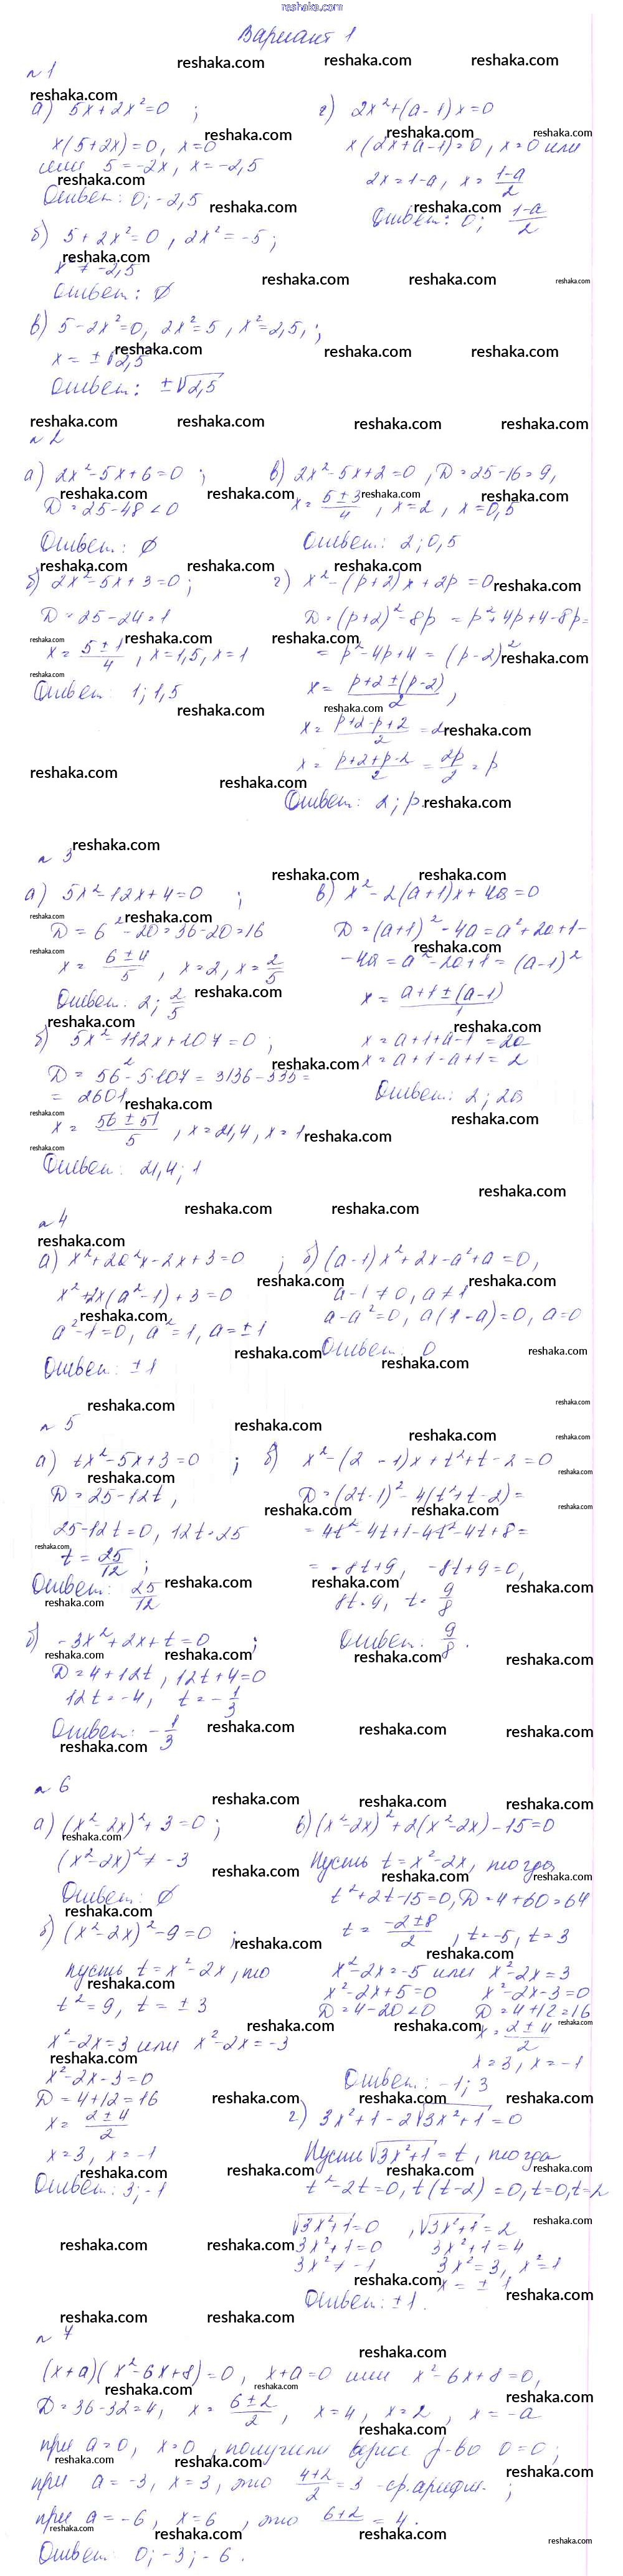 reshaka.com
Вариант 1
№1
а) 5x+2x²=0 ;
x(5+2x)=0, x=0
или 5=-2x, x=-2,5
Ответ: 0; -2,5
б) 5+2x²=0, 2x²=-5;
x²≠-2,5
Ответ: ∅
в) 5-2x²=0, 2x²=5, x²=2,5,;
x=±√2,5
Ответ: ±√2,5
г) 2x²+(a-1)x=0
x(2x+a-1)=0, x=0 или
2x=1-a, x=(1-a)/2
Ответ: 0; (1-a)/2
№2
а) 2x²-5x+6=0 ;
D=25-48<0
Ответ: ∅
б) 2x²-5x+3=0;
D=25-24=1
x=(5±1)/4, x=1,5, x=1
Ответ: 1; 1,5
в) 2x²-5x+2=0, D=25-16=9,
x=(5±3)/4, x=2, x=0,5
Ответ: 2; 0,5
г) x²-(p+2)x+2p=0
D=(p+2)²-8p=p²+4p+4-8p=
=p²-4p+4=(p-2)²
x=(p+2±(p-2))/2,
x=(p+2-p+2)/2=2
x=(p+2+p-2)/2=2p/2=p
Ответ: 2; p.
№3
а) 5x²-12x+4=0 ;
D=6²-20=36-20=16
x=(6±4)/5, x=2, x=2/5
Ответ: 2; 2/5
б) 5x²-112x+107=0 ;
D=56²-5·107=3136-535=
=2601
x=(56±51)/5, x=21,4, x=1
Ответ: 21,4; 1
в) x²-2(a+1)x+4a=0
D=(a+1)²-4a=a²+2a+1-
-4a=a²-2a+1=(a-1)²
x=(a+1±(a-1))/1
x=a+1+a-1=2a
x=a+1-a+1=2
Ответ: 2; 2a
№4
а) x²+2a²x-2x+3=0 ;
x²+2x(a²-1)+3=0
a²-1=0, a²=1, a=±1
Ответ: ±1
б) (a-1)x²+2x-a²+a=0,
a-1≠0, a≠1
a-a²=0, a(1-a)=0, a=0
Ответ: 0
№5
а) tx²-5x+3=0 ;
D=25-12t,
25-12t=0, 12t=25
t=25/12 ;
Ответ: 25/12
б) -3x²+2x+t=0 ;
D=4+12t, 12t+4=0
12t=-4, t=-1/3
Ответ: -1/3
в) x²-(2 -1)x+t²+t-2=0
D=(2t-1)²-4(t²+t-2)=
=4t²-4t+1-4t²-4t+8=
=-8t+9, -8t+9=0,
8t=9, t=9/8
Ответ: 9/8.
№6
а) (x²-2x)²+3=0 ;
(x²-2x)²≠-3
Ответ: ∅
б) (x²-2x)²-9=0 ;
пусть t=x²-2x, то
t²=9, t=±3
x²-2x=3 или x²-2x=-3
x²-2x-3=0
D=4+12=16
x=(2±4)/2
x=3, x=-1
Ответ: 3; -1
в) (x²-2x)²+2(x²-2x)-15=0
Пусть t=x²-2x, тогда
t²+2t-15=0, D=4+60=64
t=(-2±8)/2, t=-5, t=3
x²-2x=-5 или x²-2x=3
x²-2x+5=0 x²-2x-3=0
D=4-20<0 D=4+12=16
x=(2±4)/2
x=3, x=-1
Ответ: -1; 3
г) 3x²+1-2√3x²+1=0
Пусть √3x²+1=t, тогда
t²-2t=0, t(t-2)=0, t=0, t=2
√3x²+1=0 , √3x²+1=2
3x²+1=0 3x²+1=4
3x²≠-1 3x²=3, x²=1
x=±1
Ответ: ±1.
№7
(x+a)(x²-6x+8)=0, x+a=0 или x²-6x+8=0,
D=36-32=4, x=(6±2)/2, x=4, x=2, x=-a
при a=0, x=0, получили 0=0;
при a=-3, x=3, это (4+2)/2=3 -ср.арифм. ;
при a=-6, x=6, это (6+2)/ =4.
Ответ: 0; -3; -6.